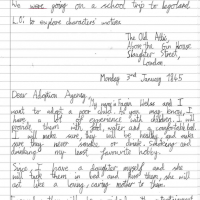 We were going on a school trip to Legoland
L.O: to explore characters' motives
The Old Attic
Above the Gin House
Slaughter Street,
London.
Monday 3rd January 1845
Dear Adoption Agency,
My name is Helsa and I
want to adopt a poor child. As you may know, I
have a lot of experience with children. I will
provide them with food, water and a comfortable bed.
I will make sure they will be healthy and make
sure they never smoke or drink - smoking and
drinking is my least favourite hobby.
Since I have a daughter myself and she
will tuck them in bed and feed them, she will
act like a loving caring mother to them.